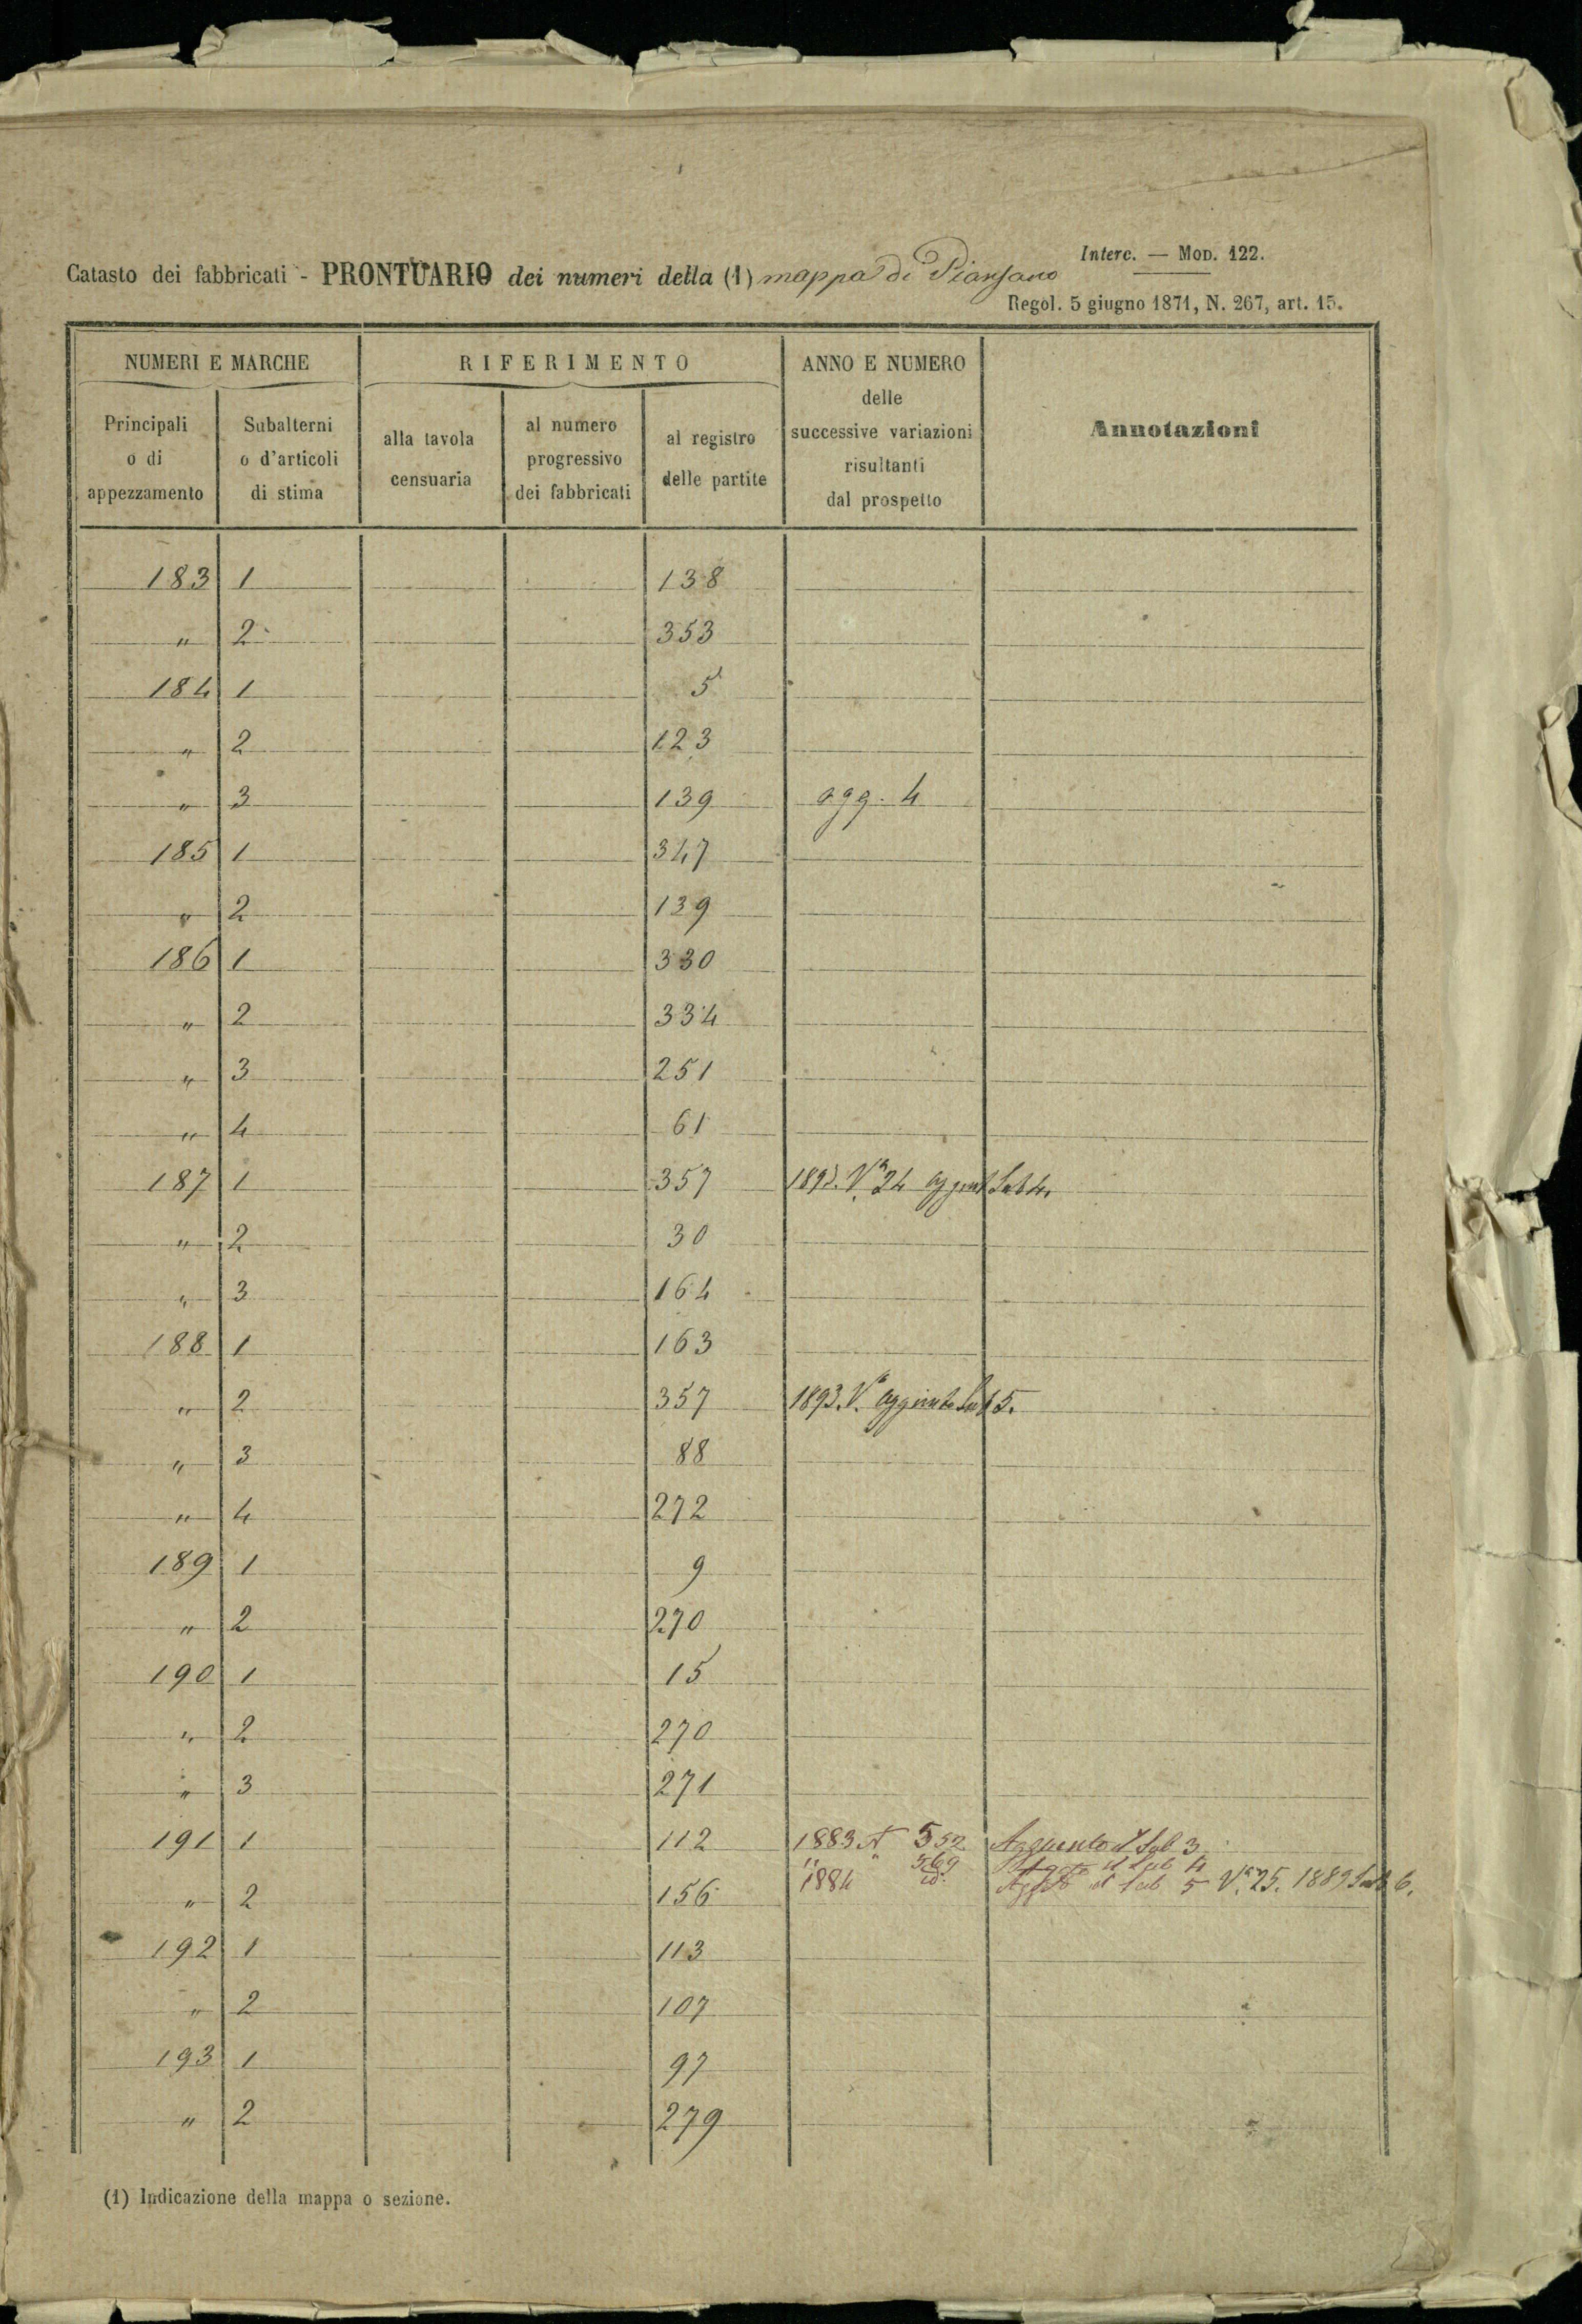 Interc. — Mod. 122.
Catasto dei fabbricati - PRONTUARIO dei numeri della (1) mappa di Piansano
Regol. 5 giugno 1871, N. 267, art. 15.
NUMERI E MARCHE RIFERIMENTO ANNO E NUMERO delle successive variazioni risultanti dal prospetto Annotazioni
Principali o di appezzamento Subalterni o d'articoli di stima alla tavola censuaria al numero progressivo dei fabbricati al registro delle partite
183 1 138
" 2 353
184 1 5
" 2 123
" 3 139 agg. 4
185 1 347
" 2 139
186 1 330
" 2 334
" 3 251
" 4 61
187 1 357 Va 24 Sub 4.
" 2 30
" 3 164
188 1 163
" 2 357 1893. Va aggiunto Sub 5.
" 3 88
" 4 272
189 1 9
" 2 270
190 1 15
" 2 270
" 3 271
191 1 112 1883 A 552 il Sub 3
" " 569 il Sub 4
" 2 156 1884 id. il Sub 5 Va. 25. 1889 Sub 6.
192 1 113
" 2 107
193 1 97
" 2 279
(1) Indicazione della mappa o sezione.